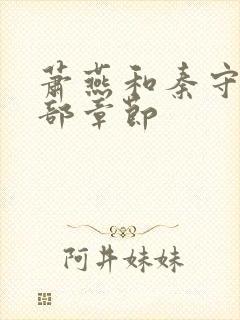 萧燕和秦守
部章节
阿井妹妹